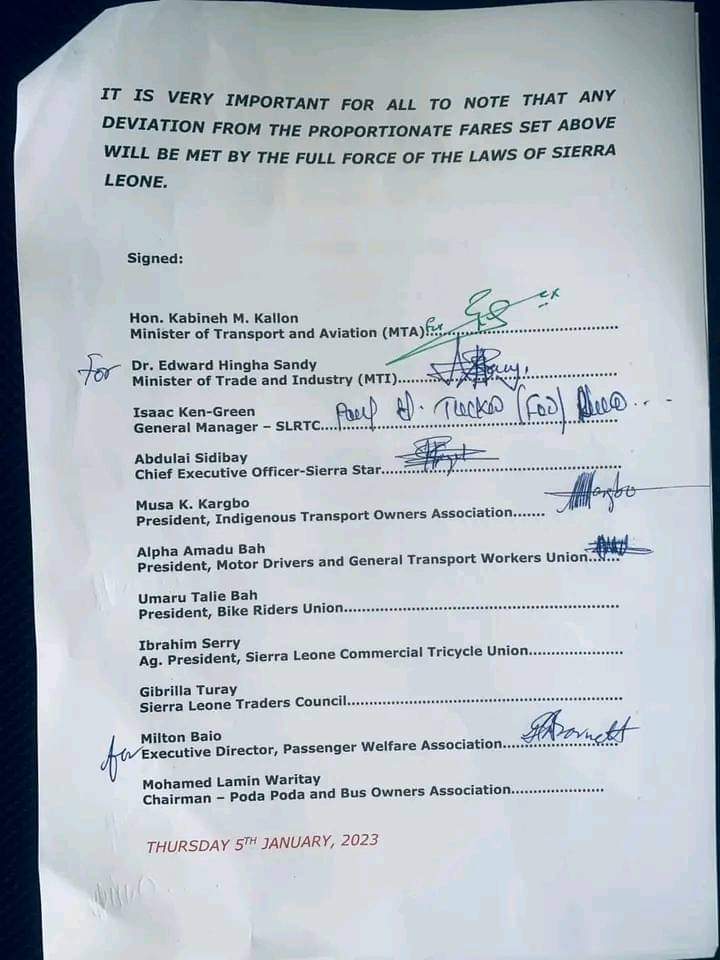 IT IS VERY IMPORTANT FOR ALL TO NOTE THAT ANY
DEVIATION FROM THE PROPORTIONATE FARES SET ABOVE
WILL BE MET BY THE FULL FORCE OF THE LAWS OF SIERRA
LEONE.
Signed:
Hon. Kabineh M. Kallon
Minister of Transport and Aviation (MTA)
For Dr. Edward Hingha Sandy
Minister of Trade and Industry (MTI)
Isaac Ken-Green
General Manager – SLRTC
Abdulai Sidibay
Chief Executive Officer-Sierra Star
Musa K. Kargbo
President, Indigenous Transport Owners Association
Alpha Amadu Bah
President, Motor Drivers and General Transport Workers Union
Umaru Talie Bah
President, Bike Riders Union
Ibrahim Serry
Ag. President, Sierra Leone Commercial Tricycle Union
Gibrilla Turay
Sierra Leone Traders Council
Milton Baio
for Executive Director, Passenger Welfare Association
Mohamed Lamin Waritay
Chairman – Poda Poda and Bus Owners Association
THURSDAY 5TH JANUARY, 2023